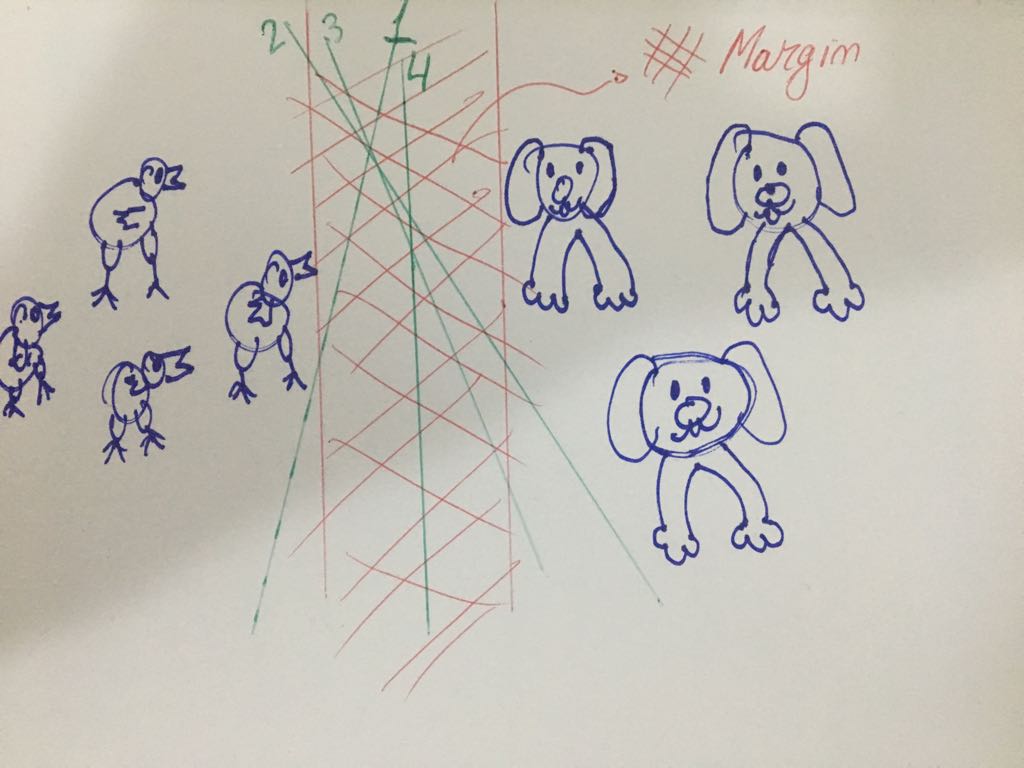 2 3 1
4
Margim